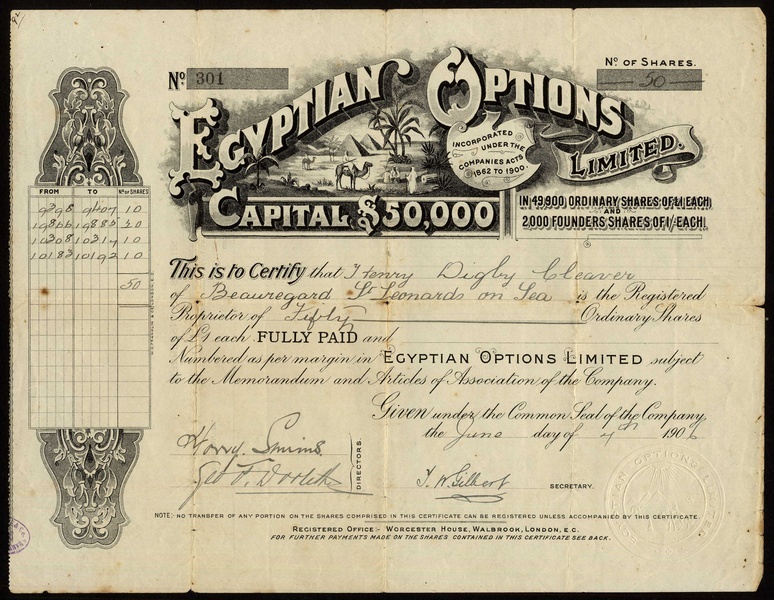 No 301
No OF SHARES.
50
EGYPTIAN OPTIONS
LIMITED.
INCORPORATED
UNDER THE
COMPANIES ACTS
1862 TO 1900.
CAPITAL £50,000
IN 49,900 ORDINARY SHARES OF £1 EACH
AND
2,000 FOUNDERS SHARES OF 1/ EACH.
FROM TO No OF SHARES
9398 9407 10
10308 10317 10
10183 10192 10
50
This is to Certify that Henry Digby Cleaver
of Beauregard St Leonards on Sea is the Registered
Proprietor of Fifty Ordinary Shares
of £1 each FULLY PAID and
Numbered as per margin in EGYPTIAN OPTIONS LIMITED subject
to the Memorandum and Articles of Association of the Company.
Given under the Common Seal of the Company
the June day of 7th 1906
DIRECTORS.
T. W. Gilbert
SECRETARY.
NOTE:- NO TRANSFER OF ANY PORTION ON THE SHARES COMPRISED IN THIS CERTIFICATE CAN BE REGISTERED UNLESS ACCOMPANIED BY THIS CERTIFICATE.
REGISTERED OFFICE:- WORCESTER HOUSE, WALBROOK, LONDON, E.C.
FOR FURTHER PAYMENTS MADE ON THE SHARES CONTAINED IN THIS CERTIFICATE SEE BACK.